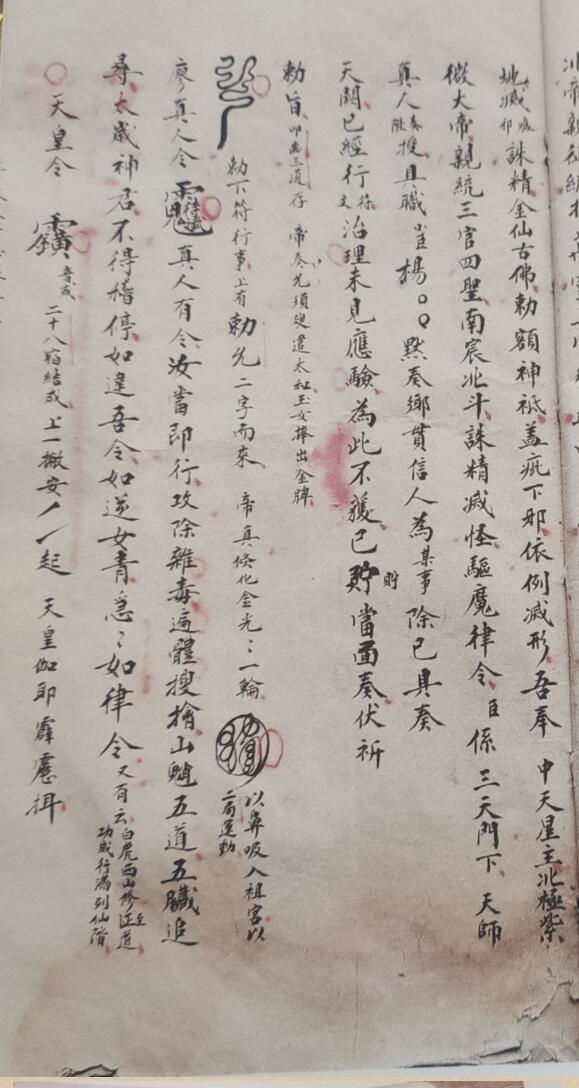 地滅誅精金仙古佛勅額神祇盖疵下邪依例滅形吾奉 中天星主北極紫
微大帝親統三官四聖南宸北斗誅精滅怪驅魔律令臣係 三天門下 天師
真人奏授具職 楊 默奏鄉貫信人為某事除已具奏
天闕已經行符文治理未見應驗為此不獲已貯貯當面奏伏祈
勅旨 帝奏先須叟遣太和玉女捧出金牌
勅下符行事上有勅允二字而來 帝真倏化金光〻一輪 以鼻吸入祖宮以二扇運動
廖真人令 真人有令汝當即行攻除雜毒遍體搜擒山魈五道五臟追
尋太歲神君不得稽停如違吾令如逆女青急〻如律令又有云白虎西山修至正道功成行滿列仙階
天皇令 二十八宿結成上一撇安丿乀起 天皇伽耶霹靂揖